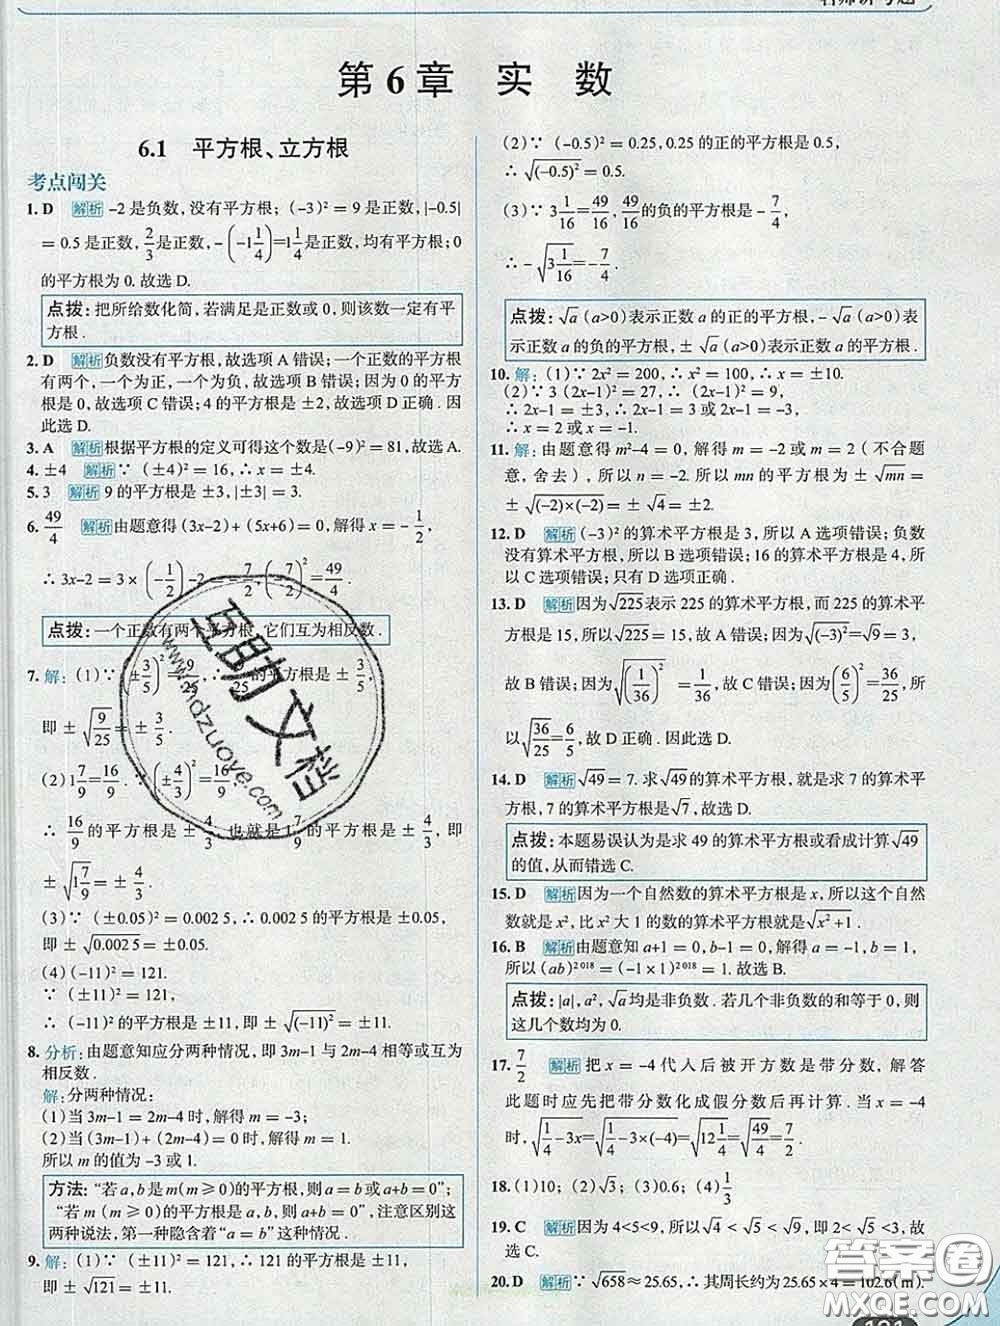 第6章 实 数
6.1 平方根、立方根
考点闯关
1. D 解析 -2是负数,没有平方根;(-3)²=9是正数,|-0.5|
=0.5是正数,2/3是正数,-(-1 1/4)=1 1/4是正数,均有平方根;0
的平方根为0.故选D.
点拨:把所给数化简,若满足是正数或0,则该数一定有平
方根.
2. D 解析 负数没有平方根,故选项A错误;一个正数的平方根
有两个,一个为正,一个为负,故选项B错误;因为0的平方
根是0,故选项C错误;4的平方根是±2,故选项D正确.因
此选D.
3. A 解析 根据平方根的定义可得这个数是(-9)²=81,故选A.
4. ±4 解析 ∵(±4)²=16,∴x=±4.
5. 3 解析 9的平方根是±3,|±3|=3.
6. 49/4 解析 由题意得(3x-2)+(5x+6)=0,解得x=-1/2,
∴3x-2=3×(-1/2)-2 7/2,(7/2)²=49/4
点拨:一个正数有两个平方根,它们互为相反数.
7. 解:(1)∵(±3/5)²=9/25,∴9/25的平方根是±3/5,
即±√(9/25)=±3/5.
(2)1 7/9=16/9,∵(±4/3)²=16/9,
∴16/9的平方根是±4/3,也就是1 7/9的平方根是±4/3,即
±√(1 7/9)=±4/3.
(3)∵(±0.05)²=0.002 5,∴0.002 5的平方根是±0.05,
即±√(0.002 5)=±0.05.
(4)(-11)²=121.
∵(±11)²=121,
∴(-11)²的平方根是±11,即±√((-11)²)=±11.
8. 分析:由题意知应分两种情况,即3m-1与2m-4相等或互为
相反数.
解:分两种情况:
(1)当3m-1=2m-4时,解得m=-3;
(2)当(3m-1)+(2m-4)=0时,解得m=1.
所以m的值为-3或1.
方法:“若a,b是m(m≥0)的平方根,则a=b或a+b=0”;
“若m(m≥0)的平方根是a,b,则a+b=0”,注意区别这
两种说法,第一种隐含着“a=b”这种情况.
9. 解:(1)∵(±11)²=121,∴121的平方根是±11,
即±√121=±11.
(2)∵(-0.5)²=0.25,0.25的正的平方根是0.5,
∴√((-0.5)²)=0.5.
(3)∵3 1/16=49/16,49/16的负的平方根是-7/4,
∴-√(3 1/16)=-7/4.
点拨:√a(a>0)表示正数a的正的平方根,-√a(a>0)表
示正数a的负的平方根,±√a(a>0)表示正数a的平方根.
10. 解:(1)∵2x²=200,∴x²=100,∴x=±10.
(2)∵3(2x-1)²=27,∴(2x-1)²=9,
∴2x-1=±3,∴2x-1=3或2x-1=-3,
∴x=2或x=-1.
11. 解:由题意得m²-4=0,解得m=-2或m=2(不合题
意,舍去),所以n=-2.所以mn的平方根为±√mn=
±√((-2)×(-2))=±√4=±2.
12. D 解析 (-3)²的算术平方根是3,所以A选项错误;负数
没有算术平方根,所以B选项错误;16的平方根是4,所
以C选项错误;只有D选项正确.
13. D 解析 因为√225表示225的算术平方根,而225的算术平
方根是15,所以√225=15,故A错误;因为√((-3)²)=√9=3,
故B错误;因为√((1/36)²)=1/36,故C错误;因为(6/5)²=36/25,所
以√(36/25)=6/5,故D正确.因此选D.
14. D 解析 √49=7.求√49的算术平方根,就是求7的算术平
方根,7的算术平方根是√7,故选D.
点拨:本题易误认为是求49的算术平方根或看成计算√49
的值,从而错选C.
15. D 解析 因为一个自然数的算术平方根是x,所以这个自然
数就是x²,比x²大1的数的算术平方根就是√(x²+1).
16. B 解析 由题意知a+1=0,b-1=0,解得a=-1,b=1,
所以(ab)²⁰¹⁸=(-1×1)²⁰¹⁸=1.故选B.
点拨:|a|,a²,√a均是非负数.若几个非负数的和等于0,则
这几个数均为0.
17. 7/2 解析 把x=-4代入后被开方数是带分数,解答
此题时应先把带分数化成假分数后再计算.当x=-4
时,√(1/4-3x)=√(1/4-3×(-4))=√(12 1/4)=√(49/4)=7/2.
18. (1)10;(2)√3;(3)0.6;(4)1/3
19. C 解析 因为4<5<9,所以√4<√5<√9,即2<√5<3.故
选C.
20. D 解析 ∵√658≈25.65,∴其周长约为25.65×4=102.6(m).
互助文档
www.hdzuoye.com
答案圈
MXQE.COM